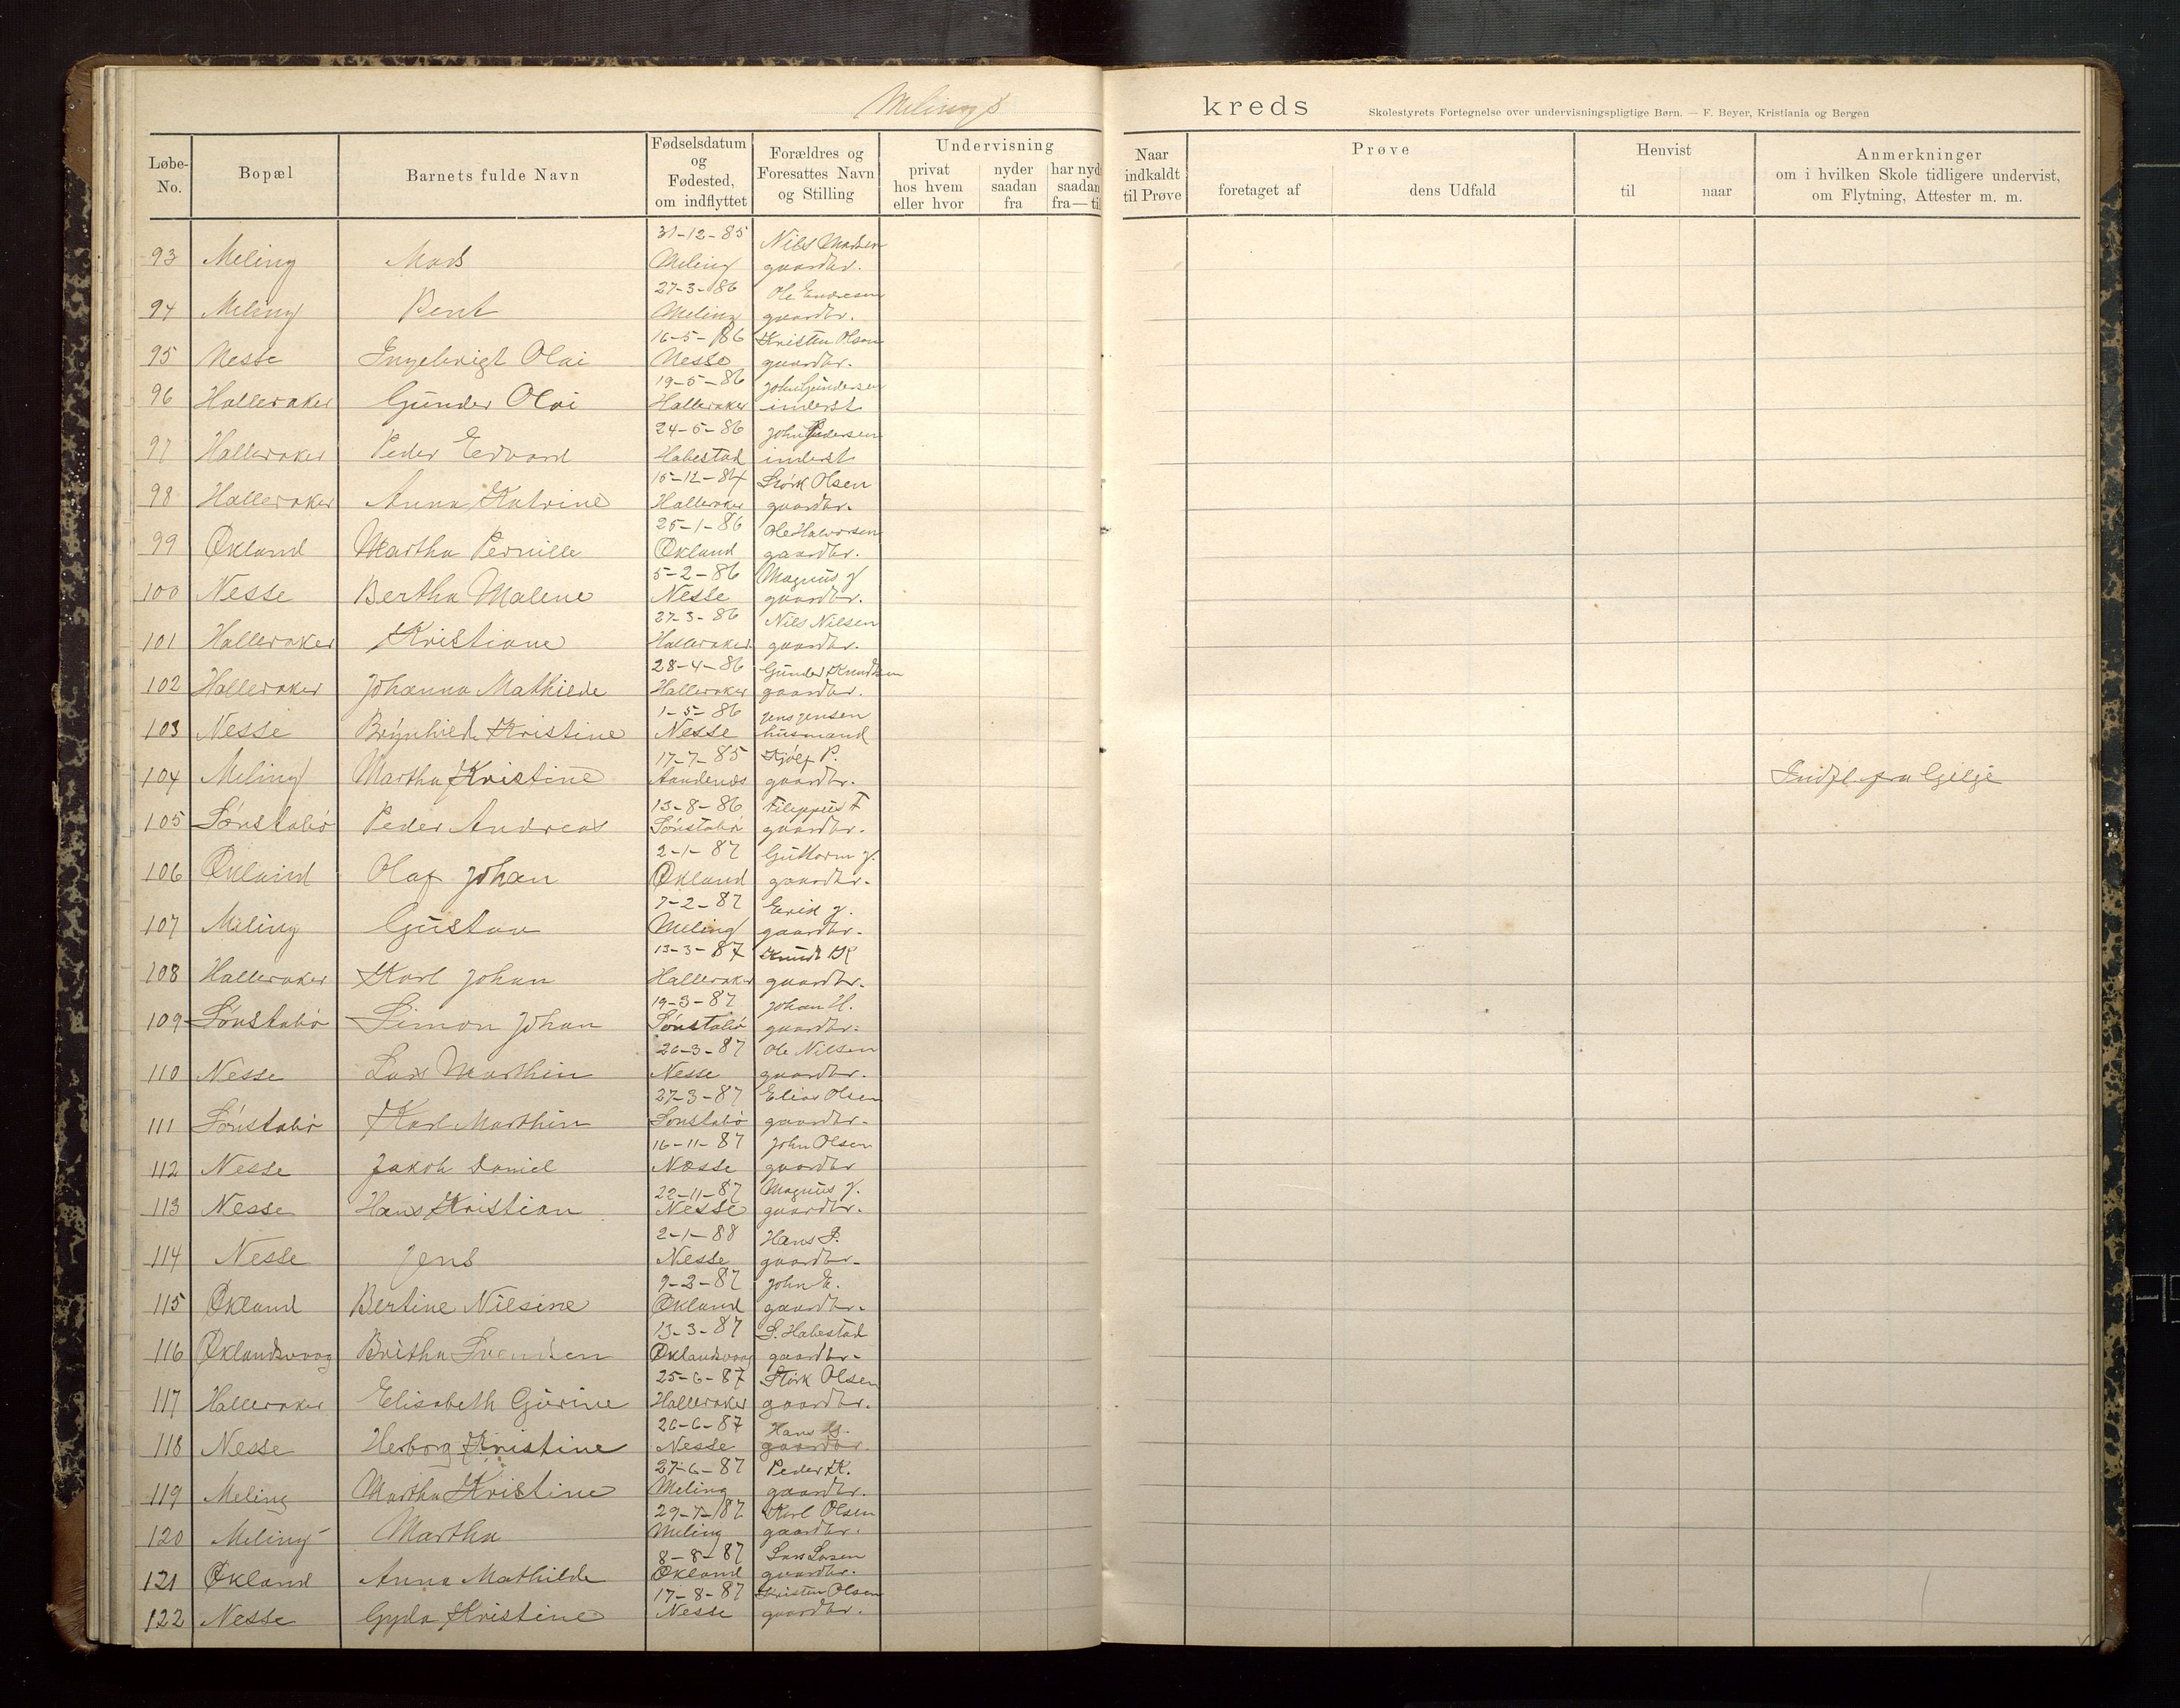 Melings kreds Skolestyrets Fortegnelse over undervisningspligtige Børn. — F. Beyer, Kristiania og Bergen
Løbe-No. Bopæl Barnets fulde Navn Fødselsdatum og Fødested, om indflyttet Forældres og Foresattes Navn og Stilling Undervisning privat hos hvem eller hvor nyder saadan fra har nydt saadan fra — til Naar indkaldt til Prøve Prøve foretaget af dens Udfald Henvist til naar Anmerkninger om i hvilken Skole tidligere undervist, om Flytning, Attester m. m.
31-12-85 Nils Madsen
93 Meling Mads Meling gaardbr.
27-3-86 Ole Endresen
94 Meling Bent Meling gaardbr.
16-5-86 Kristen Olsen
95 Nesse Ingebrigt Olai Nesse gaardbr.
19-5-86 John Gundersen
96 Halleraker Gunder Olai Halleraker inderst
24-5-86 John Pedersen
97 Halleraker Peder Edvard Habestad inderst
15-12-84 Størk Olsen
98 Halleraker Anna Katrine Halleraker gaardbr.
25-1-86 Ole Halvorsen
99 Økland Martha Pernille Økland gaardbr.
5-2-86 Magnus J
100 Nesse Bertha Malene Nesse gaardbr.
27-3-86 Nils Nilsen
101 Halleraker Kristiane Halleraker gaardbr.
28-4-86 Gunder Knudsen
102 Halleraker Johanna Mathilde Halleraker gaardbr.
1-5-86 Jens Jensen
103 Nesse Brynhild Kristine Nesse husmand
17-7-85 P.
104 Meling Martha Kristine gaardbr. Indfl. fra Gjelje
13-8-86 Filippus F
105 Sønstabø Peder Andreas Sønstabø gaardbr.
2-1-87 Guttorm J.
106 Økland Olaf Johan Økland gaardbr.
7-2-87 Erik J.
107 Meling Gustav Meling gaardbr.
13-3-87 Knud K
108 Halleraker Karl Johan Halleraker gaardbr.
19-3-87 Johan H.
109 Sønstabø Simon Johan Sønstabø gaardbr.
20-3-87 Ole Nilsen
110 Nesse Lars Marthin Nesse gaardbr.
27-3-87 Elias Olsen
111 Sønstabø Karl Marthin Sønstabø gaardbr.
16-11-87 John Olsen
112 Nesse Jakob Daniel Nesse gaardbr
22-11-87 Magnus J.
113 Nesse Hans Kristian Nesse gaardbr.
2-1-88 Hans S.
114 Nesse Jens Nesse gaardbr.
9-2-87 John E.
115 Økland Bertine Nilsine Økland gaardbr.
13-3-87 S. Habestad
116 Øklandsvaag Britha Svendsen Øklandsvaag gaardbr.
25-6-87 Størk Olsen
117 Halleraker Elisabeth Gurine Halleraker gaardbr.
26-6-87 Hans
118 Nesse Herborg Kristine Nesse gaardbr.
27-6-87 Peder K.
119 Meling Martha Kristine Meling gaardbr.
29-7-87 Karl Olsen
120 Meling Martha Meling gaardbr.
8-8-87 Lars Larsen
121 Økland Anna Mathilde Økland gaardbr.
17-8-87 Kristen Olsen
122 Nesse Gyda Kristine Nesse gaardbr.